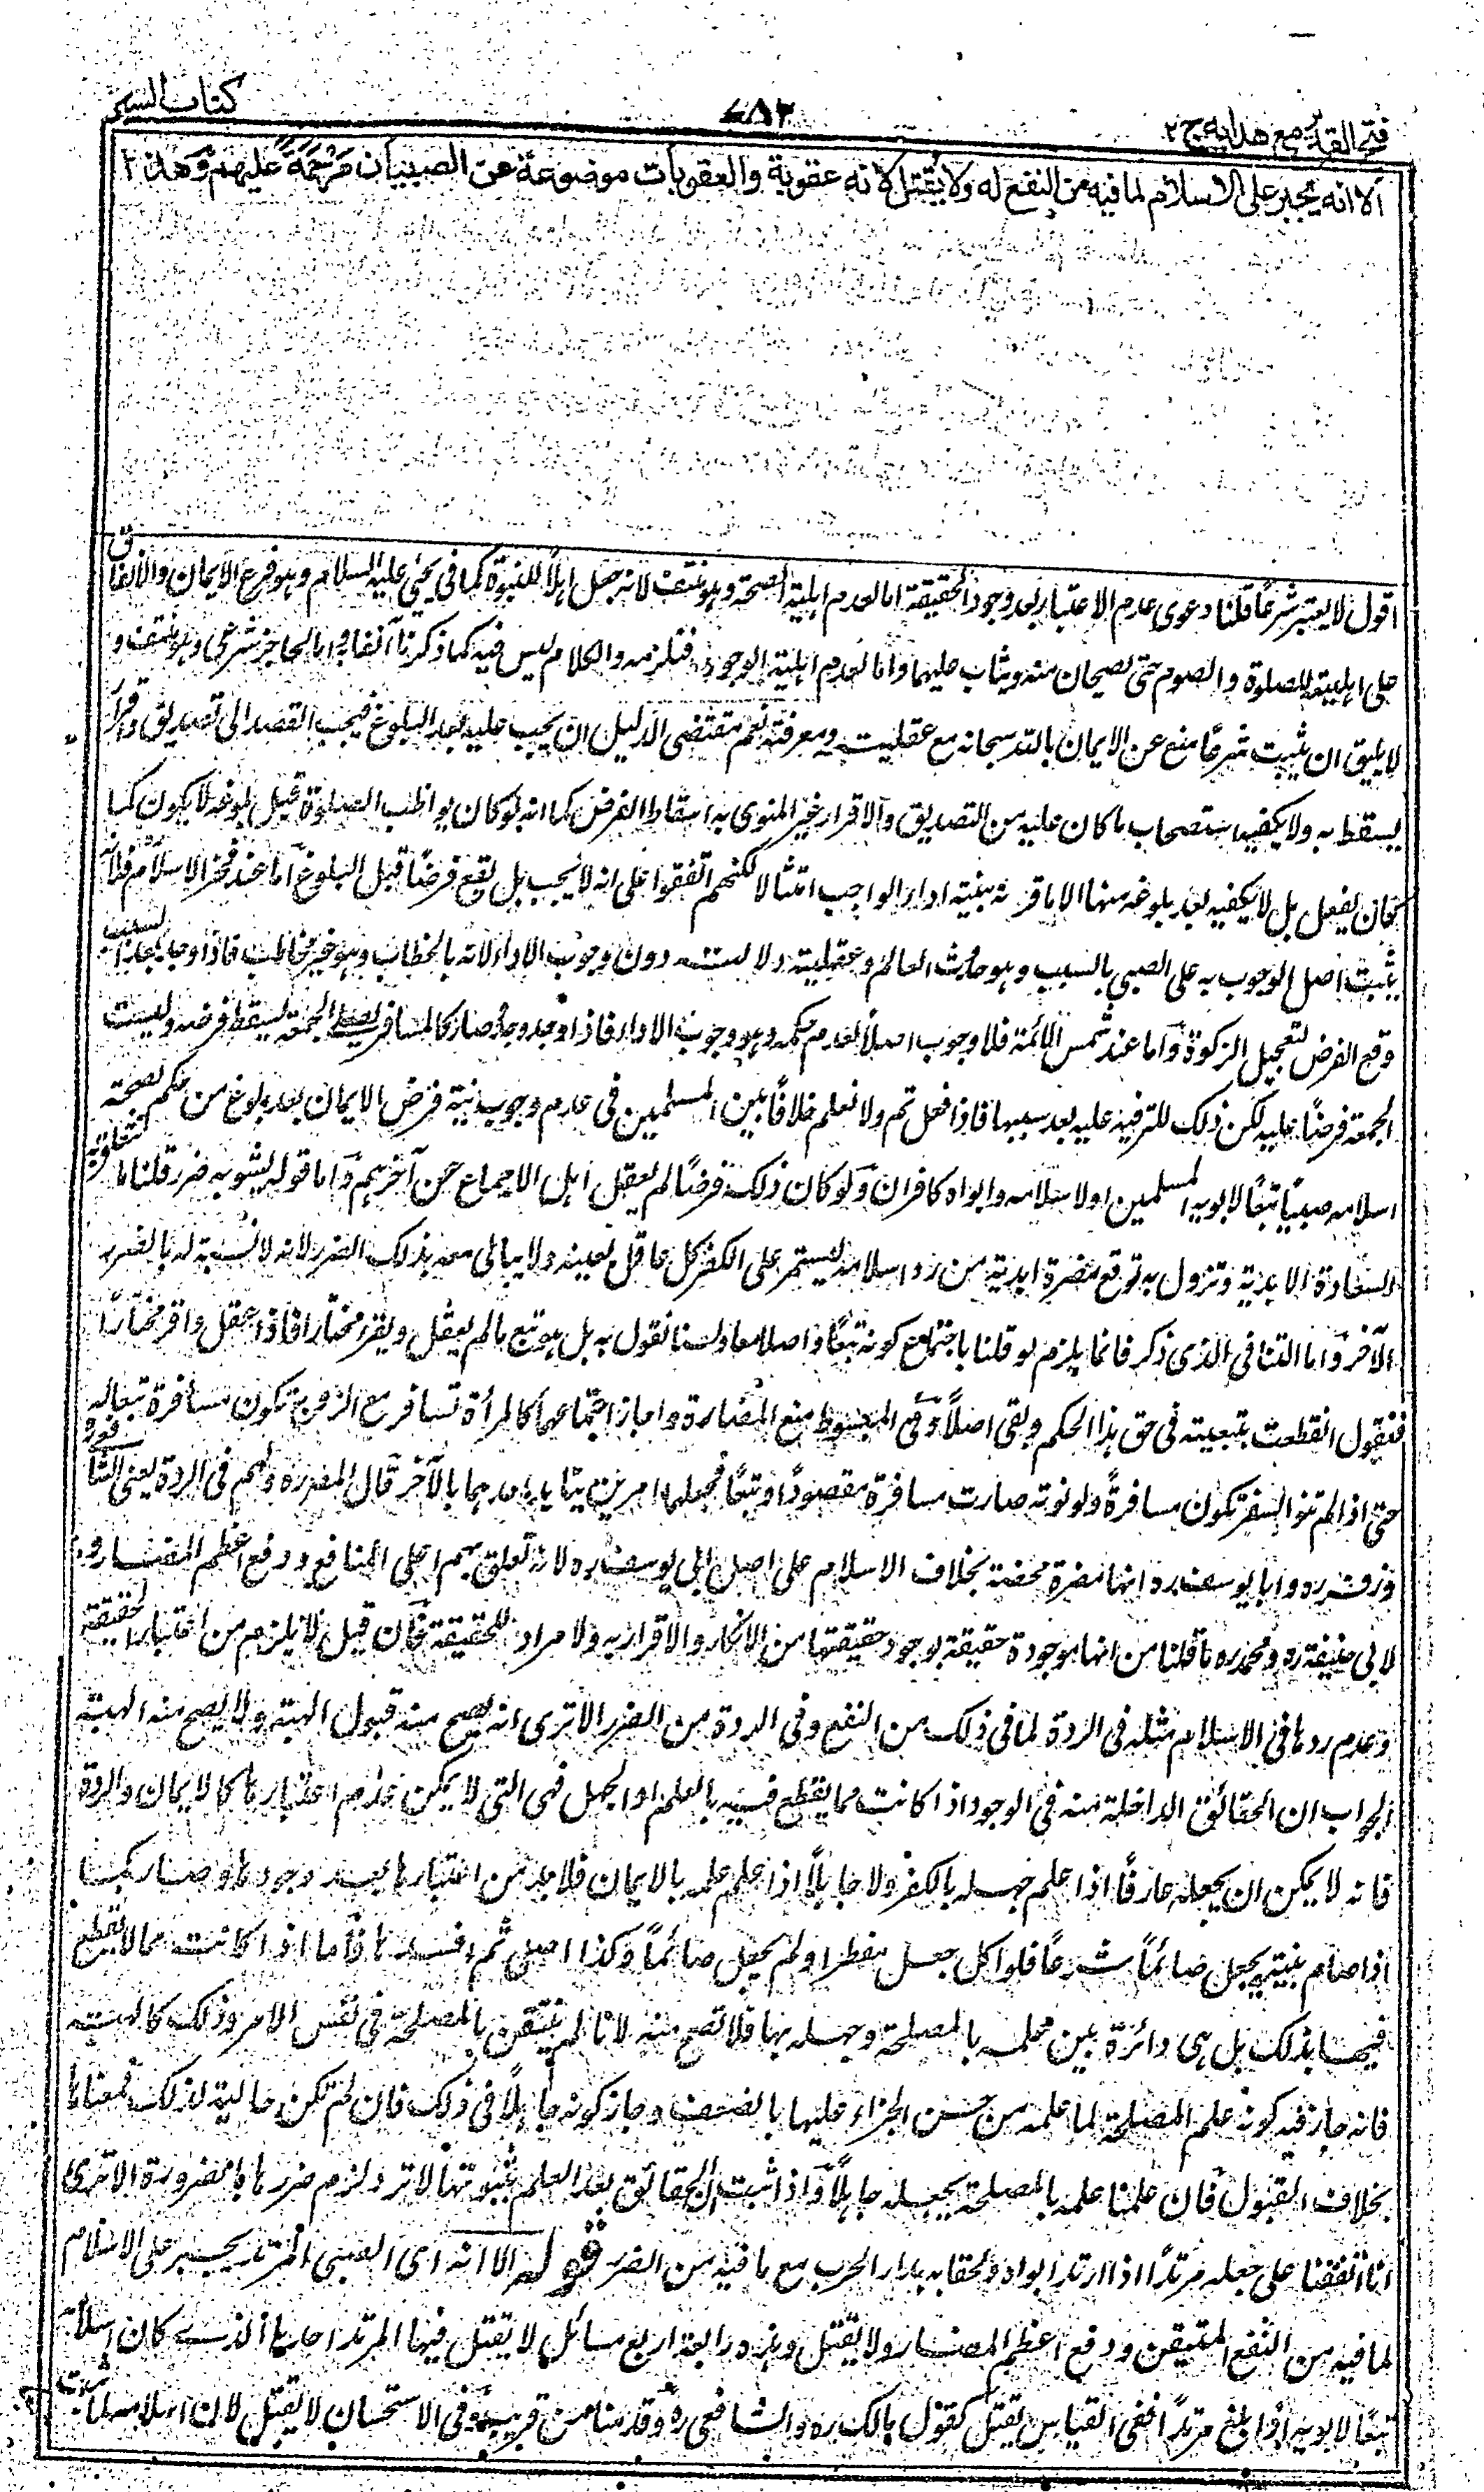 فتح القدير مع هدايه ج ٢
٧٨٢
كتاب السير
الا انه يجبر على الاسلام لما فيه من النفع له ولا يقتل لانه عقوبة والعقوبات موضوعة عن الصبيان مرحمة عليهم وهذا
اقول لا يعتبر شرعًا قلنا دعوى عدم الاعتبار بعد وجود الحقيقة اما لعدم اهلية الصحة وهو منتف لانه جعل اهلاً للنبوة كما فى يحيى عليه السلام وهو فرع الايمان والاتفاق
على اهليته للصلوة والصوم حتى تصيحان منه ويثاب عليهما واما لعدم اهلية الوجوب فنلزمه والكلام ليس فيه كما ذكرنا آنفا واما لحاجز شرعى وهو منتف و
لا يليق ان يثبت شرعًا منع عن الايمان بالله سبحانه مع عقليته ومعرفته نعم مقتضى الدليل ان يجب عليه بعد البلوغ فيجب القصد الى تصديق واقرار
يسقط به ولا يكفيه استصحاب ما كان عليه من التصديق والاقرار غير المنوى به اسقاط الفرض كما انه لو كان يواظب الصلوة قبل بلوغه لا يكون كما
كان يفعل بل لا يكفيه بعد بلوغه منها الا ما قرنه بنية اداء الواجب امتثالا لكنهم اتفقوا على انه لا يجب بل يقع فرضًا قبل البلوغ اما عند فخر الاسلام فلانه
يثبت اصل الوجوب به على الصبى بالسبب وهو حدث العالم وعقلية دلالته دون وجوب الاداء لانه بالخطاب وهو غير مخاطب فاذا وجد بعد السبب
وقع الفرض لتعجيل الزكوة واما عند شمس الائمة فلا وجوب اصلاً لعدم حكمه وهو وجوب الاداء فاذا وجد وجد وصار كالمسافر يصلى الجمعة يسقط فرضه وليست
الجمعة فرضًا عليه لكن ذلك للترفيه عليه بعد سببها فاذا فعل تم ولا نعلم خلافًا بين المسلمين فى عدم وجوب نية فرض الايمان بعد بلوغ من حكم بصحة
اسلامه صبيًا تبعًا لابويه المسلمين او لاسلامه وابواه كافران ولو كان ذلك فرضًا لم يغفل اهل الاجماع عن آخرهم واما قوله يشوبه ضرر قلنا ما تتعلق به
السعادة الابدية وتزول به توقع مضرة ابدية من رد اسلامه ليستمر على الكفر كل عاقل بعينه ولا يبالى معه بذلك الضرر لانه لا نسبة له بالضرر
الآخر واما التنافى الذى ذكر فانما يلزم لو قلنا باجتماع كونه تبعًا واصلا معا ولسنا نقول به بل هو تبع ما لم يعقل ويقر مختارا فاذا عقل واقر مختارًا
فنقول انقطعت تبعيته فى حق هذا الحكم وبقى اصلاً وفى المبسوط منع المضارة واجاز اجتماعهما كالمرأة تسافر مع الزوج تكون مسافرة تبعا له
حتى اذا لم تنو السفر تكون مسافرةً ولو نوته صارت مسافرة مقصودًا وتبعًا فجعلهما امرين يتايد احدهما بالآخر قال المصنف ره ولهم فى الردة يعنى الشافعى
وزفر ره وابا يوسف ره انها مضرة محضة بخلاف الاسلام على اصل ابى يوسف ره لانه تعلق بهم اعلى المنافع ودفع اعظم المضار و
لابى حنيفة ره ومحمد ره ما قلنا من انها موجودة حقيقة بوجود حقيقتها من الانكار والاقرار به ولا مرد للحقيقة فان قيل لا يلزم من اعتبار الحقيقة
وعدم ردها فى الاسلام مثله فى الردة لما فى ذلك من النفع وفى الردة من الضرر الا ترى انه يصح منه قبول الهبة ولا يصح منه الهبة
الجواب ان الحقائق الداخلة منه فى الوجود اذا كانت مما يقطع فيه بالعلم او الجهل فهى التى لا يمكن عدم اعتبارها كالايمان والردة
فانه لا يمكن ان يجعله عارفًا اذا علم جهله بالكفر ولا جاهلاً اذا علم علمه بالايمان فلا بد من اعتبارها بعد وجودها وصار كما
اذا صام بنيته يجعل صائمًا شرعًا فلو اكل جعل مفطرا ولم يجعل صائمًا وكذا اصلى ثم افسدها فاما اذا كانت مما لا يقطع
فيها بذلك بل هى دائرة بين علمه بالمصلحة وجهله بها فلا تصح منه لانا لم نتيقن بالمصلحة فى نفس الامر وذلك كالهبة
فانه جاز فيه كونه علم المصلحة لما علمه من حسن الجزاء عليها بالضعف وجاز كونه جاهلاً فى ذلك فان لم تكن حالية لذلك فمعناها
بخلاف القبول فان علمنا علمه بالمصلحة يجعله جاهلاً واذا ثبت ان الحقائق بعد العلم بثبوتها لا ترد لزم ضررها بالضرورة الا ترى
انا اتفقنا على جعله مرتدًا اذا ارتد ابواه ولحقا به بدار الحرب مع ما فيه من الضرر قوله الا انه اى الصبى المرتد يجبر على الاسلام
لما فيه من النفع المتيقن ودفع اعظم المضار ولا يقتل وهذه رابعة اربع مسائل لا يقتل فيها المرتد احدها الذى كان اسلامه
تبعًا لابويه اذا بلغ مرتدًا ففى القياس يقتل كقول مالك ره والشافعى ره وقدمنا من قريب وفى الاستحسان لا يقتل لان اسلامه لما ثبت